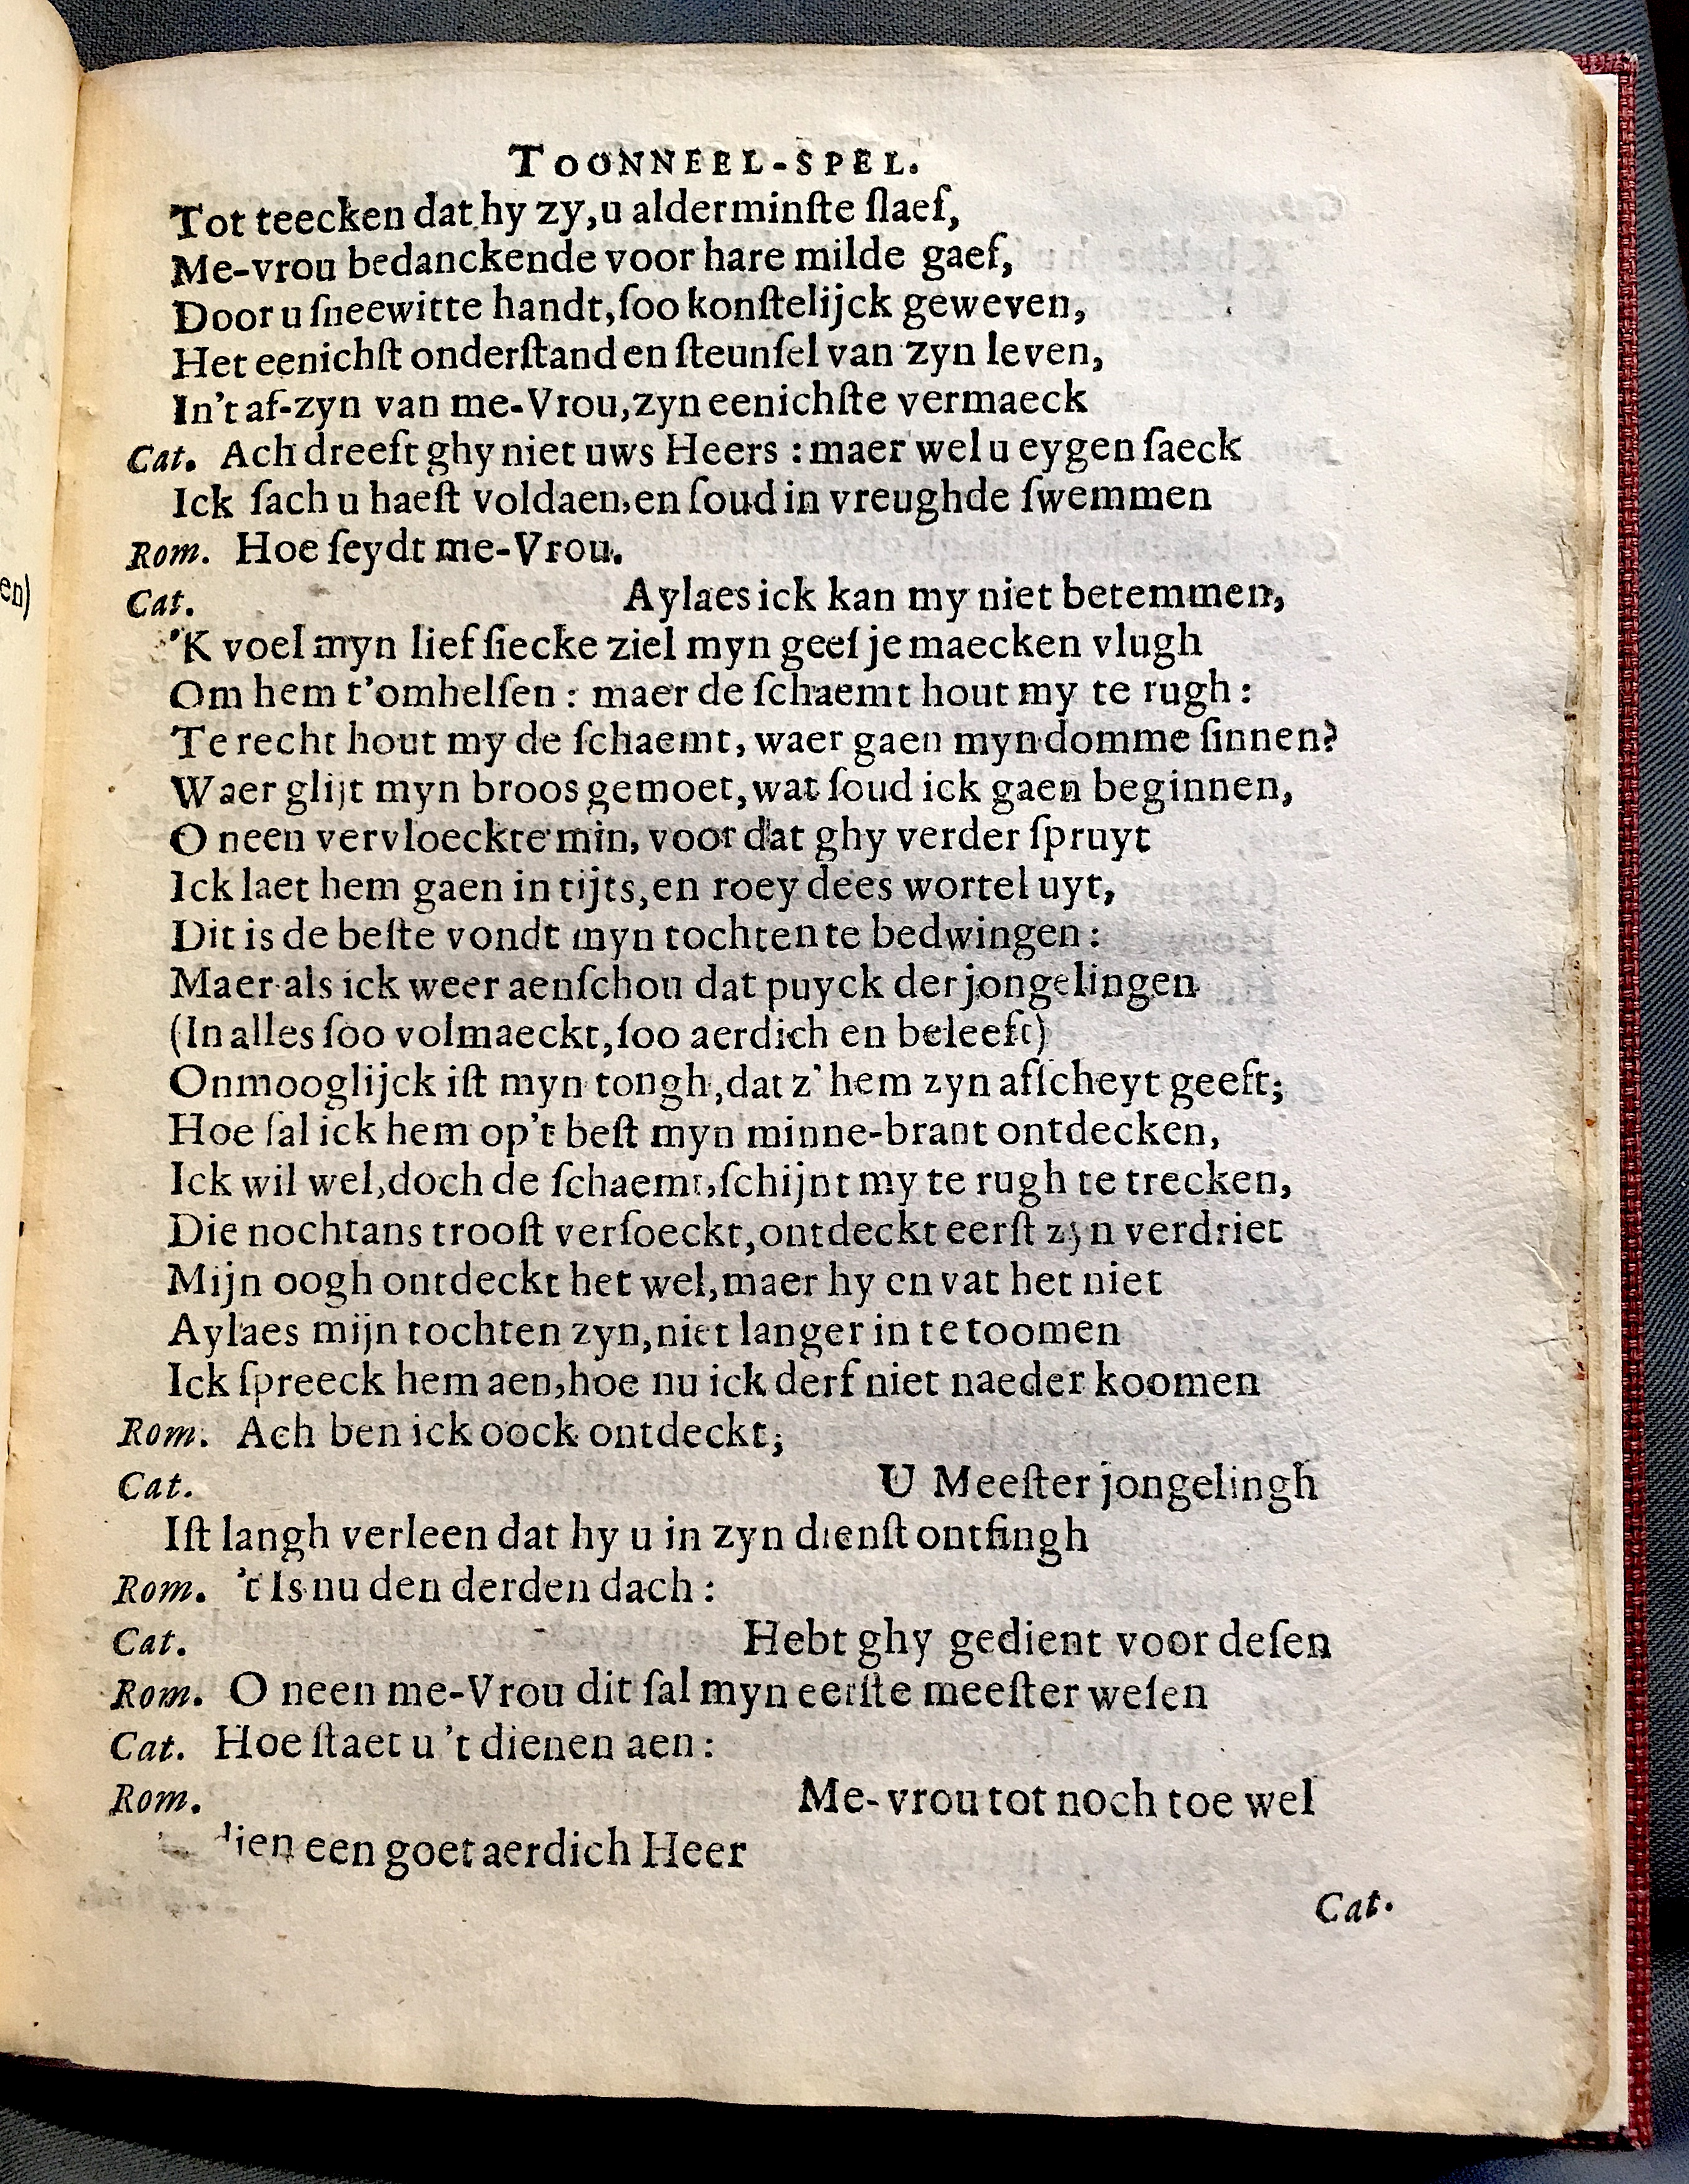 en)
TOONNEEL-SPEL.
Tot teecken dat hy zy, u alderminſte ſlaef,
Me-vrou bedanckende voor hare milde gaef,
Door u ſneewitte handt, ſoo konſtelijck geweven,
Het eenichſt onderſtand en ſteunſel van zyn leven,
In't af-zyn van me-Vrou, zyn eenichſte vermaeck
Cat. Ach dreeft ghy niet uws Heers : maer wel u eygen ſaeck
Ick ſach u haeſt voldaen, en ſoud in vreughde ſwemmen
Rom. Hoe ſeydt me-Vrou.
Cat. Aylaes ick kan my niet betemmen,
'K voel myn lief ſiecke ziel myn geeſ je maecken vlugh
Om hem t'omhelſen : maer de ſchaemt hout my te rugh :
Te recht hout my de ſchaemt, waer gaen myn domme ſinnen?
Waer glijt myn broos gemoet, wat ſoud ick gaen beginnen,
O neen vervloeckte min, voor dat ghy verder ſpruyt
Ick laet hem gaen in tijts, en roey dees wortel uyt,
Dit is de beſte vondt myn tochten te bedwingen :
Maer als ick weer aenſchou dat puyck der jongelingen
(In alles ſoo volmaeckt, ſoo aerdich en beleeft)
Onmooglijck iſt myn tongh, dat z' hem zyn afſcheyt geeft;
Hoe ſal ick hem op't beſt myn minne-brant ontdecken,
Ick wil wel, doch de ſchaemt, ſchijnt my te rugh te trecken,
Die nochtans trooſt verſoeckt, ontdeckt eerſt zyn verdriet
Mijn oogh ontdeckt het wel, maer hy en vat het niet
Aylaes mijn tochten zyn, niet langer in te toomen
Ick ſpreeck hem aen, hoe nu ick derf niet naeder koomen
Rom. Ach ben ick oock ontdeckt;
Cat. U Meeſter jongelingh
Iſt langh verleen dat hy u in zyn dienſt ontfingh
Rom. 't Is nu den derden dach :
Cat. Hebt ghy gedient voor deſen
Rom. O neen me-Vrou dit ſal myn eerſte meeſter weſen
Cat. Hoe ſtaet u 't dienen aen :
Rom. Me-vrou tot noch toe wel
dien een goet aerdich Heer
Cat.